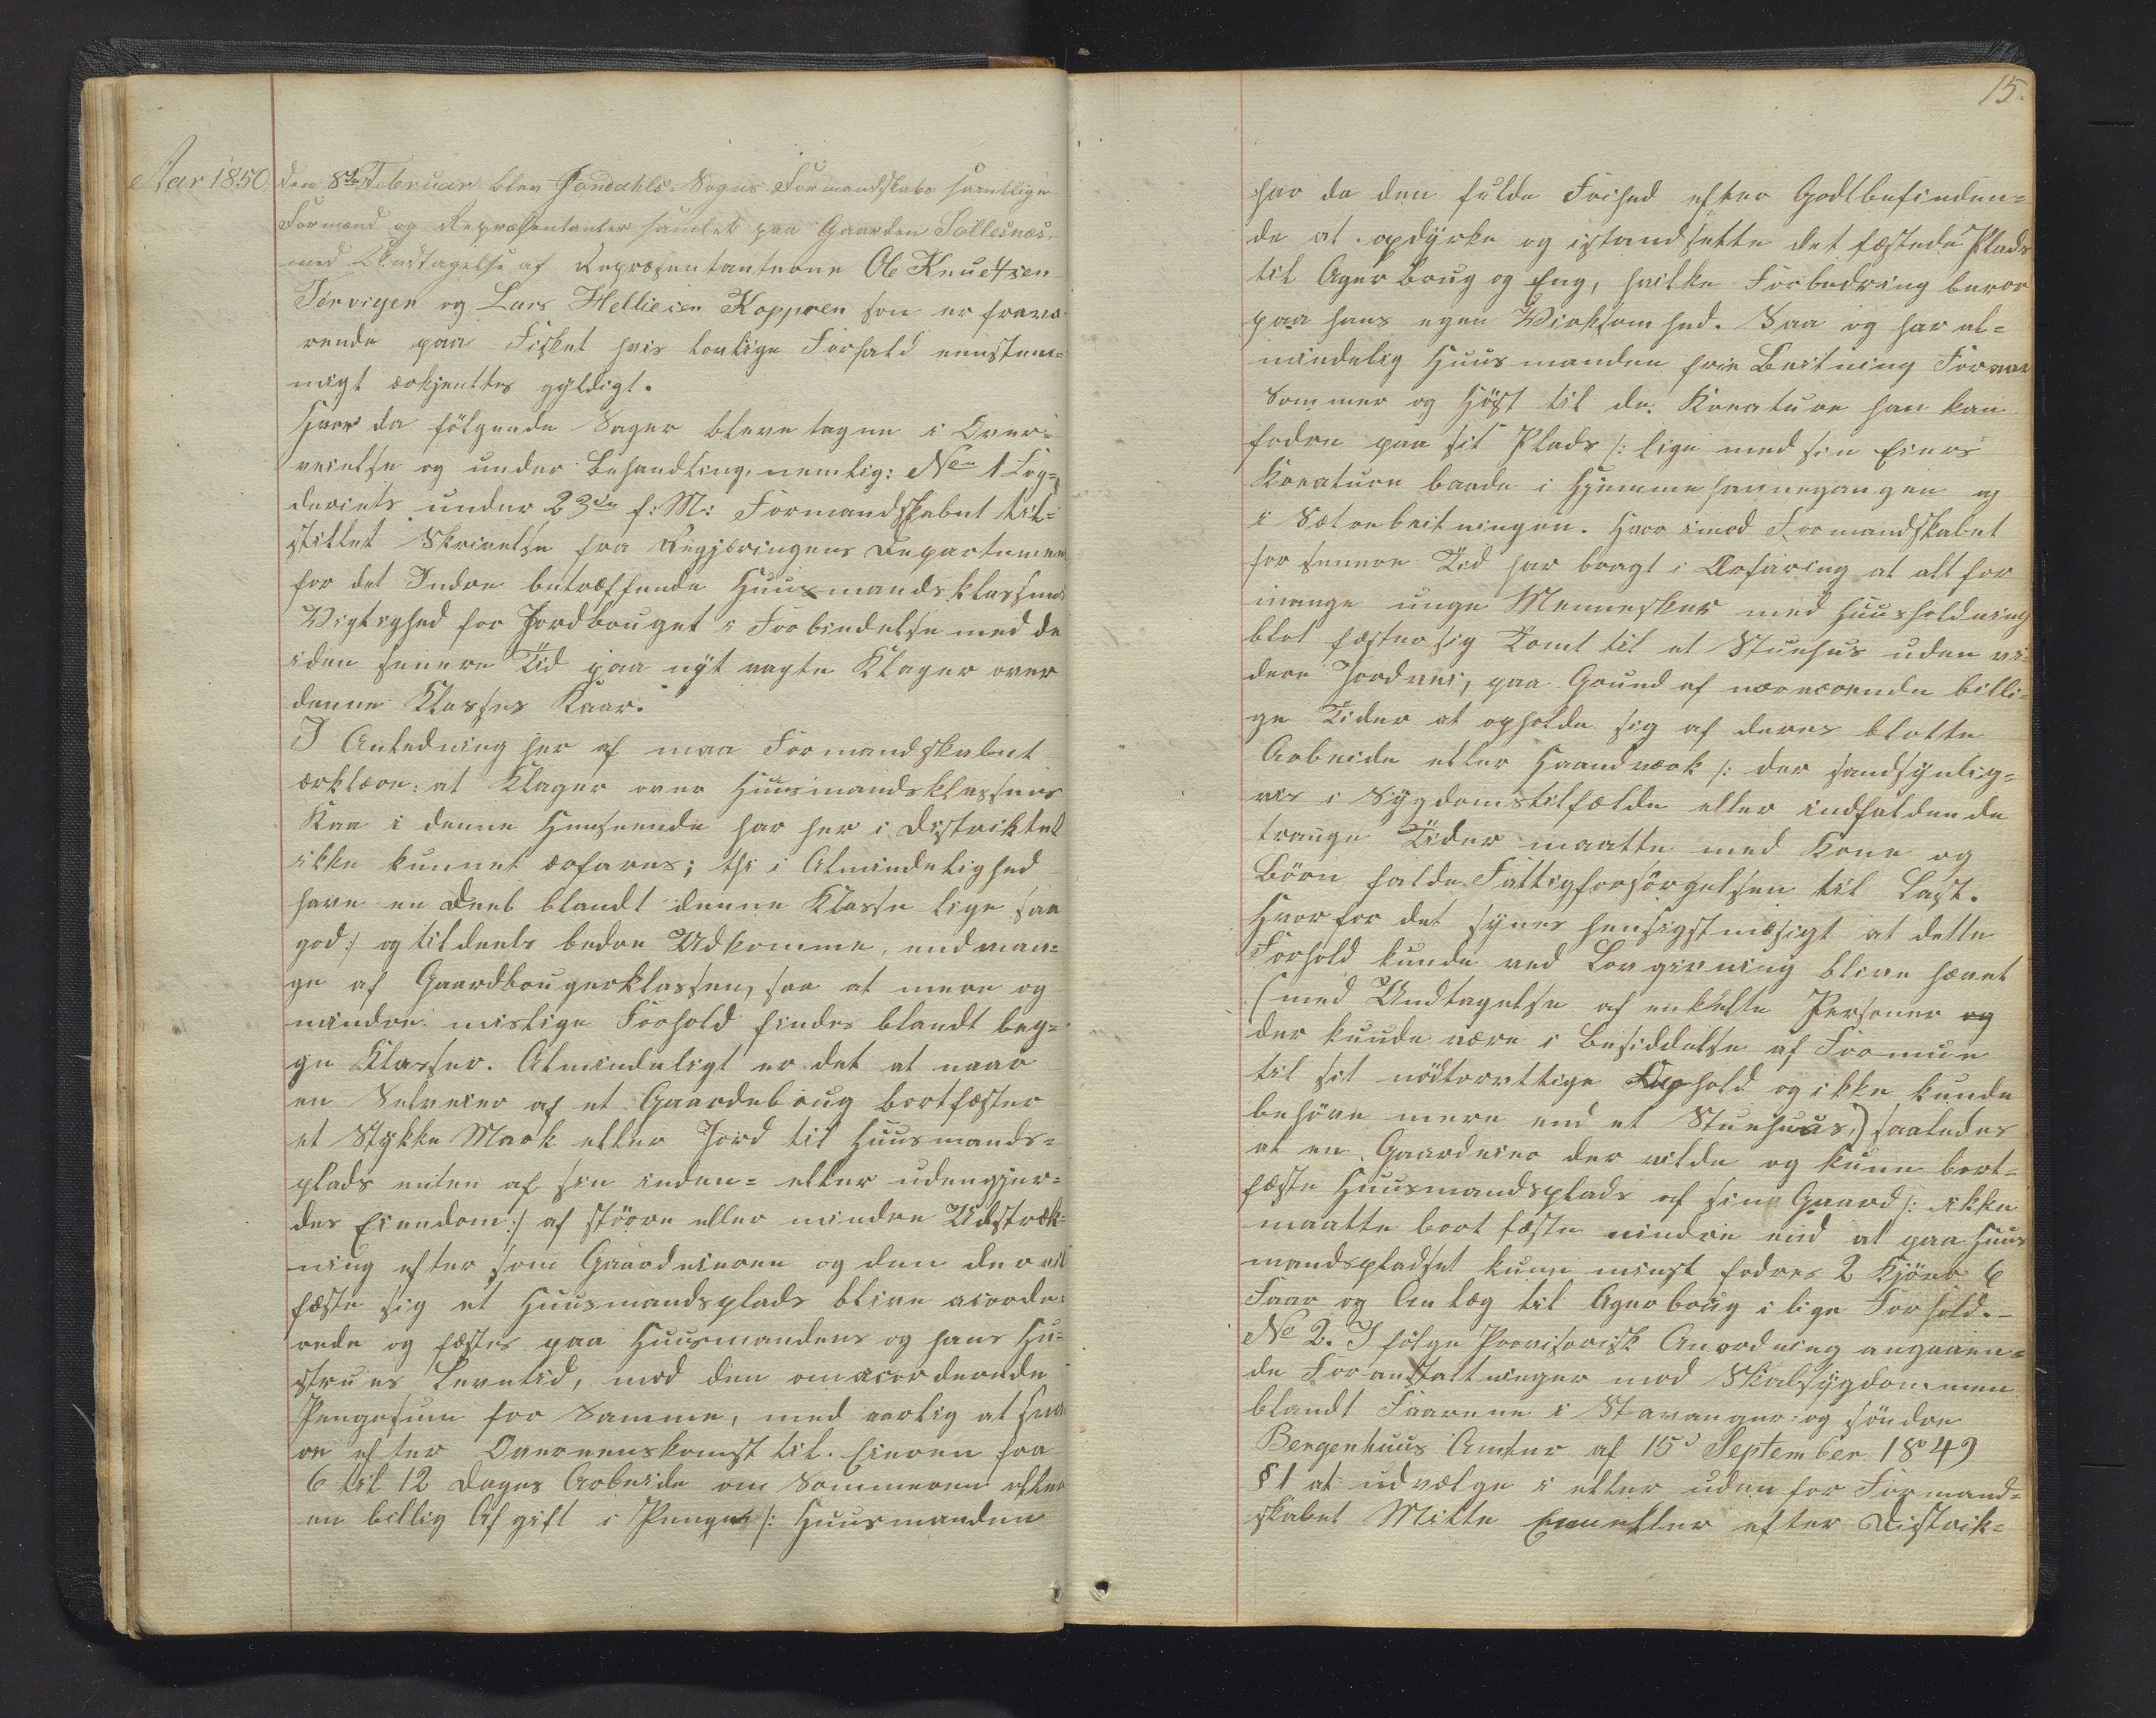 Aar 1850
den 8de Februar blev Jondahls Sogns Formandskabs samtlige
Formænd og Repræsentanter samlet paa Gaarden Sollesnæs,
med Undtagelse af Repræsentanterne Ole Knudtsen
Tørvigen og Lars Helliesen Koppren som er fravæ-
rende paa Fisket hvis lovlige Forfald eenstem-
migt ærkjentes gyldigt.
Hvor da følgende Sager bleve tagne i Over-
veielse og under Behandling, nemlig: No 1 Fog-
deriets under 23de f: M: Formandskabet til-
stillet Skrivelse fra Regjeringens Departement
for det Indre betræffende Huusmandsklassens
Vigtighed for Jordbruget i Forbindelse med de
i den senere Tid paa nyt vagte Klager over
denne Klasses Kaar.
I Anledning her af maa Formandskabet
ærklære: at Klager over Huusmandsklassens
Kaa i denne Henseende har her i Distriktet
ikke kunnet ærfares; thi i Almindelighed
have en Deel blandt denne Klasse lige saa
god :/ og tildeels bedre Udkomme, end man-
ge af Gaardbrugerklassen, saa at mere og
mindre mislige Forhold findes blandt beg-
ge Klasser. Almindeligt er det at naar
en Selveier af et Gaardebrug bortfæster
et Stykke Mark eller Jord til Huusmands-
plads enten af sin inden- eller udengjer-
des Eiendom :/ af større eller mindre Udstræk-
ning efter som Gaardeieren og den der vil
fæste sig et Huusmandsplads blive acorde-
rede og fæstes paa Huusmandens og hans Hu-
strues Levetid, mod den omacorderede
Pengesum for Samme, med aarlig at sva-
re efter Overeenskomst til Eieren fra
6 til 12 Dages Arbeide om Sommeren eller
en billig Afgift i Penge /: Huusmanden
15.
har da den fulde Frihed efter Godtbefinden-
de at opdyrke og istandsette det fæstede Plads
til Ager Brug og Eng, hvilke Forbedring beror
paa hans egen Virksomhed. Saa og har al-
mindelig Huusmanden frie Beitning Foraar
Sommer og Høst til de Kreature han kan
fodre paa sit Plads /: lige med sin Eiers
Kreature baade i Hjemmehavnegangen og
i Sæterbeitningen. Hvor imod Formandskabet
for senere Tid har bragt i Ærfaring at alt for
mange unge Mennesker med Huusholdning
blot fæster sig Tomt til et Stuehus uden vi-
dere Jordvei, paa Grund af nærværende billi-
ge Tider at opholde sig af deres blotte
Arbeide eller Haandværk /: der sandsynlig-
vis i Sygdomstilfælde eller indfaldende
trange Tider maatte med Kone og
Børn falde Fattigforsørgelsen til Last.
Hvorfor det synes hensigtsmæsigt at dette
Forhold kunde ved Lovgivning blive hævet
(med Undtagelse af enkelte Personer og
der kunde være i Besiddelse af Formue
til sit nødtørvttige Ophold og ikke kunde
behøve mere end et Stuehuus,) saaledes
at en Gaardeier der vilde og kunn bort-
fæste Huusmandsplads af sin Gaard /: ikke
maatte bort fæste mindre end at paa Huus
mandspladset kunn minst fodres 2 Kjør 6
Faar og Anlæg til Agerbrug i lige Forhold.
No 2. I følge Provisorisk Anordning angaaen-
de Foranstaltninger mod Skabsygdommen
blandt Faarene i Stavanger- og søndre
Bergenhuus Amter af 15d September 1849
§ 1 at udvælge i eller uden for Formand-
skabet Mitte Een eller efter Distrik-